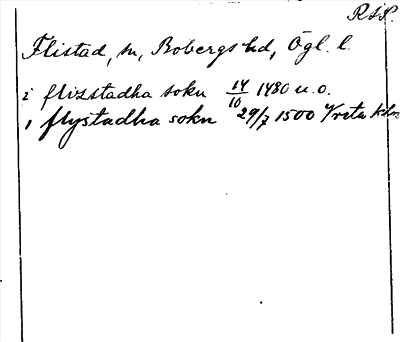 RAP.
Flistad, sn, Bobergs hd, Ögl. l.
i flizstadha sokn 14/10 1480 u.o.
i flystadha sokn 29/7 1500 Vreta